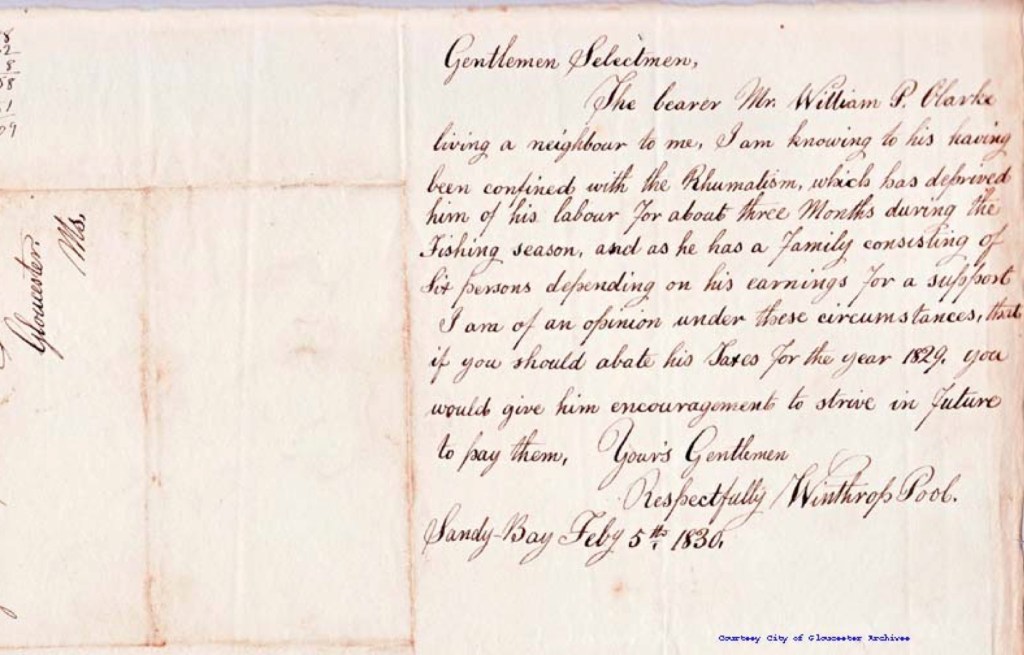 Gentlemen Selectmen,
The bearer Mr. William P. Clarke
living a neighbour to me, I am knowing to his having
been confined with the Rhumatism, which has deprived
him of his labour for about three Months during the
Fishing season, and as he has a family consisting of
Six persons depending on his earnings for a support
I am of an opinion under these circumstances, that
if you should abate his Taxes for the year 1829. you
would give him encouragement to strive in future
to pay them, Your's Gentlemen
Respectfully Winthrop Pool.
Sandy-Bay Feby 5th 1830.
Gloucester.
Ms.
Courtesy City of Gloucester Archives